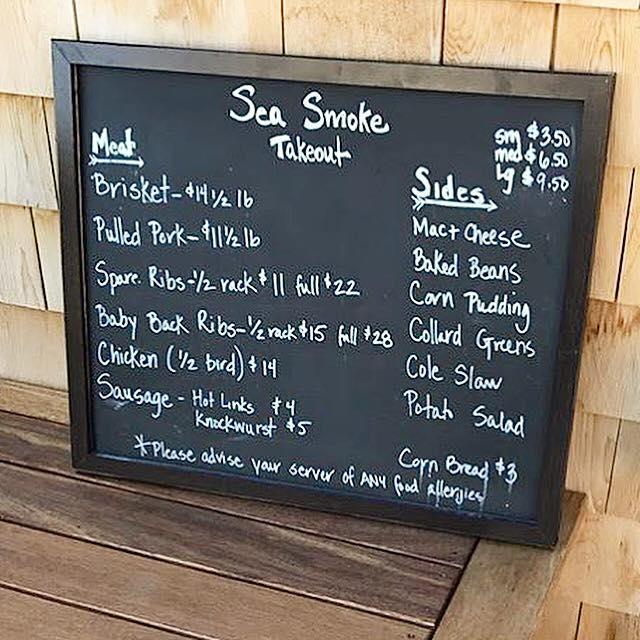 Sea Smoke
Takeout
Meat
Brisket - $14 1/2 lb
Pulled Pork - $11 1/2 lb
Spare Ribs - 1/2 rack $11 full $22
Baby Back Ribs - 1/2 rack $15 full $28
Chicken (1/2 bird) $14
Sausage - Hot Links $4
Knockwurst $5
sm $3.50
med $6.50
lg $9.50
Sides
Mac + Cheese
Baked Beans
Corn Pudding
Collard Greens
Cole Slaw
Potato Salad
Corn Bread $3
*Please advise your server of ANY food allergies